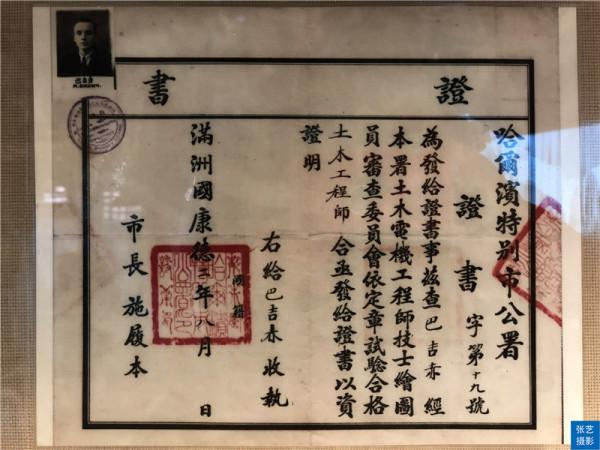 證書
哈爾濱特別市公署
證書字第十九號
為發給證書事茲查巴吉赤經
本署土木電機工程師技士繪圖
員審查委員會依定章試驗合格
土木工程師 合亟發給證書以資
證明
右給巴吉赤收執
滿洲國康德二年八月 日
市長施履本
张艺
摄影